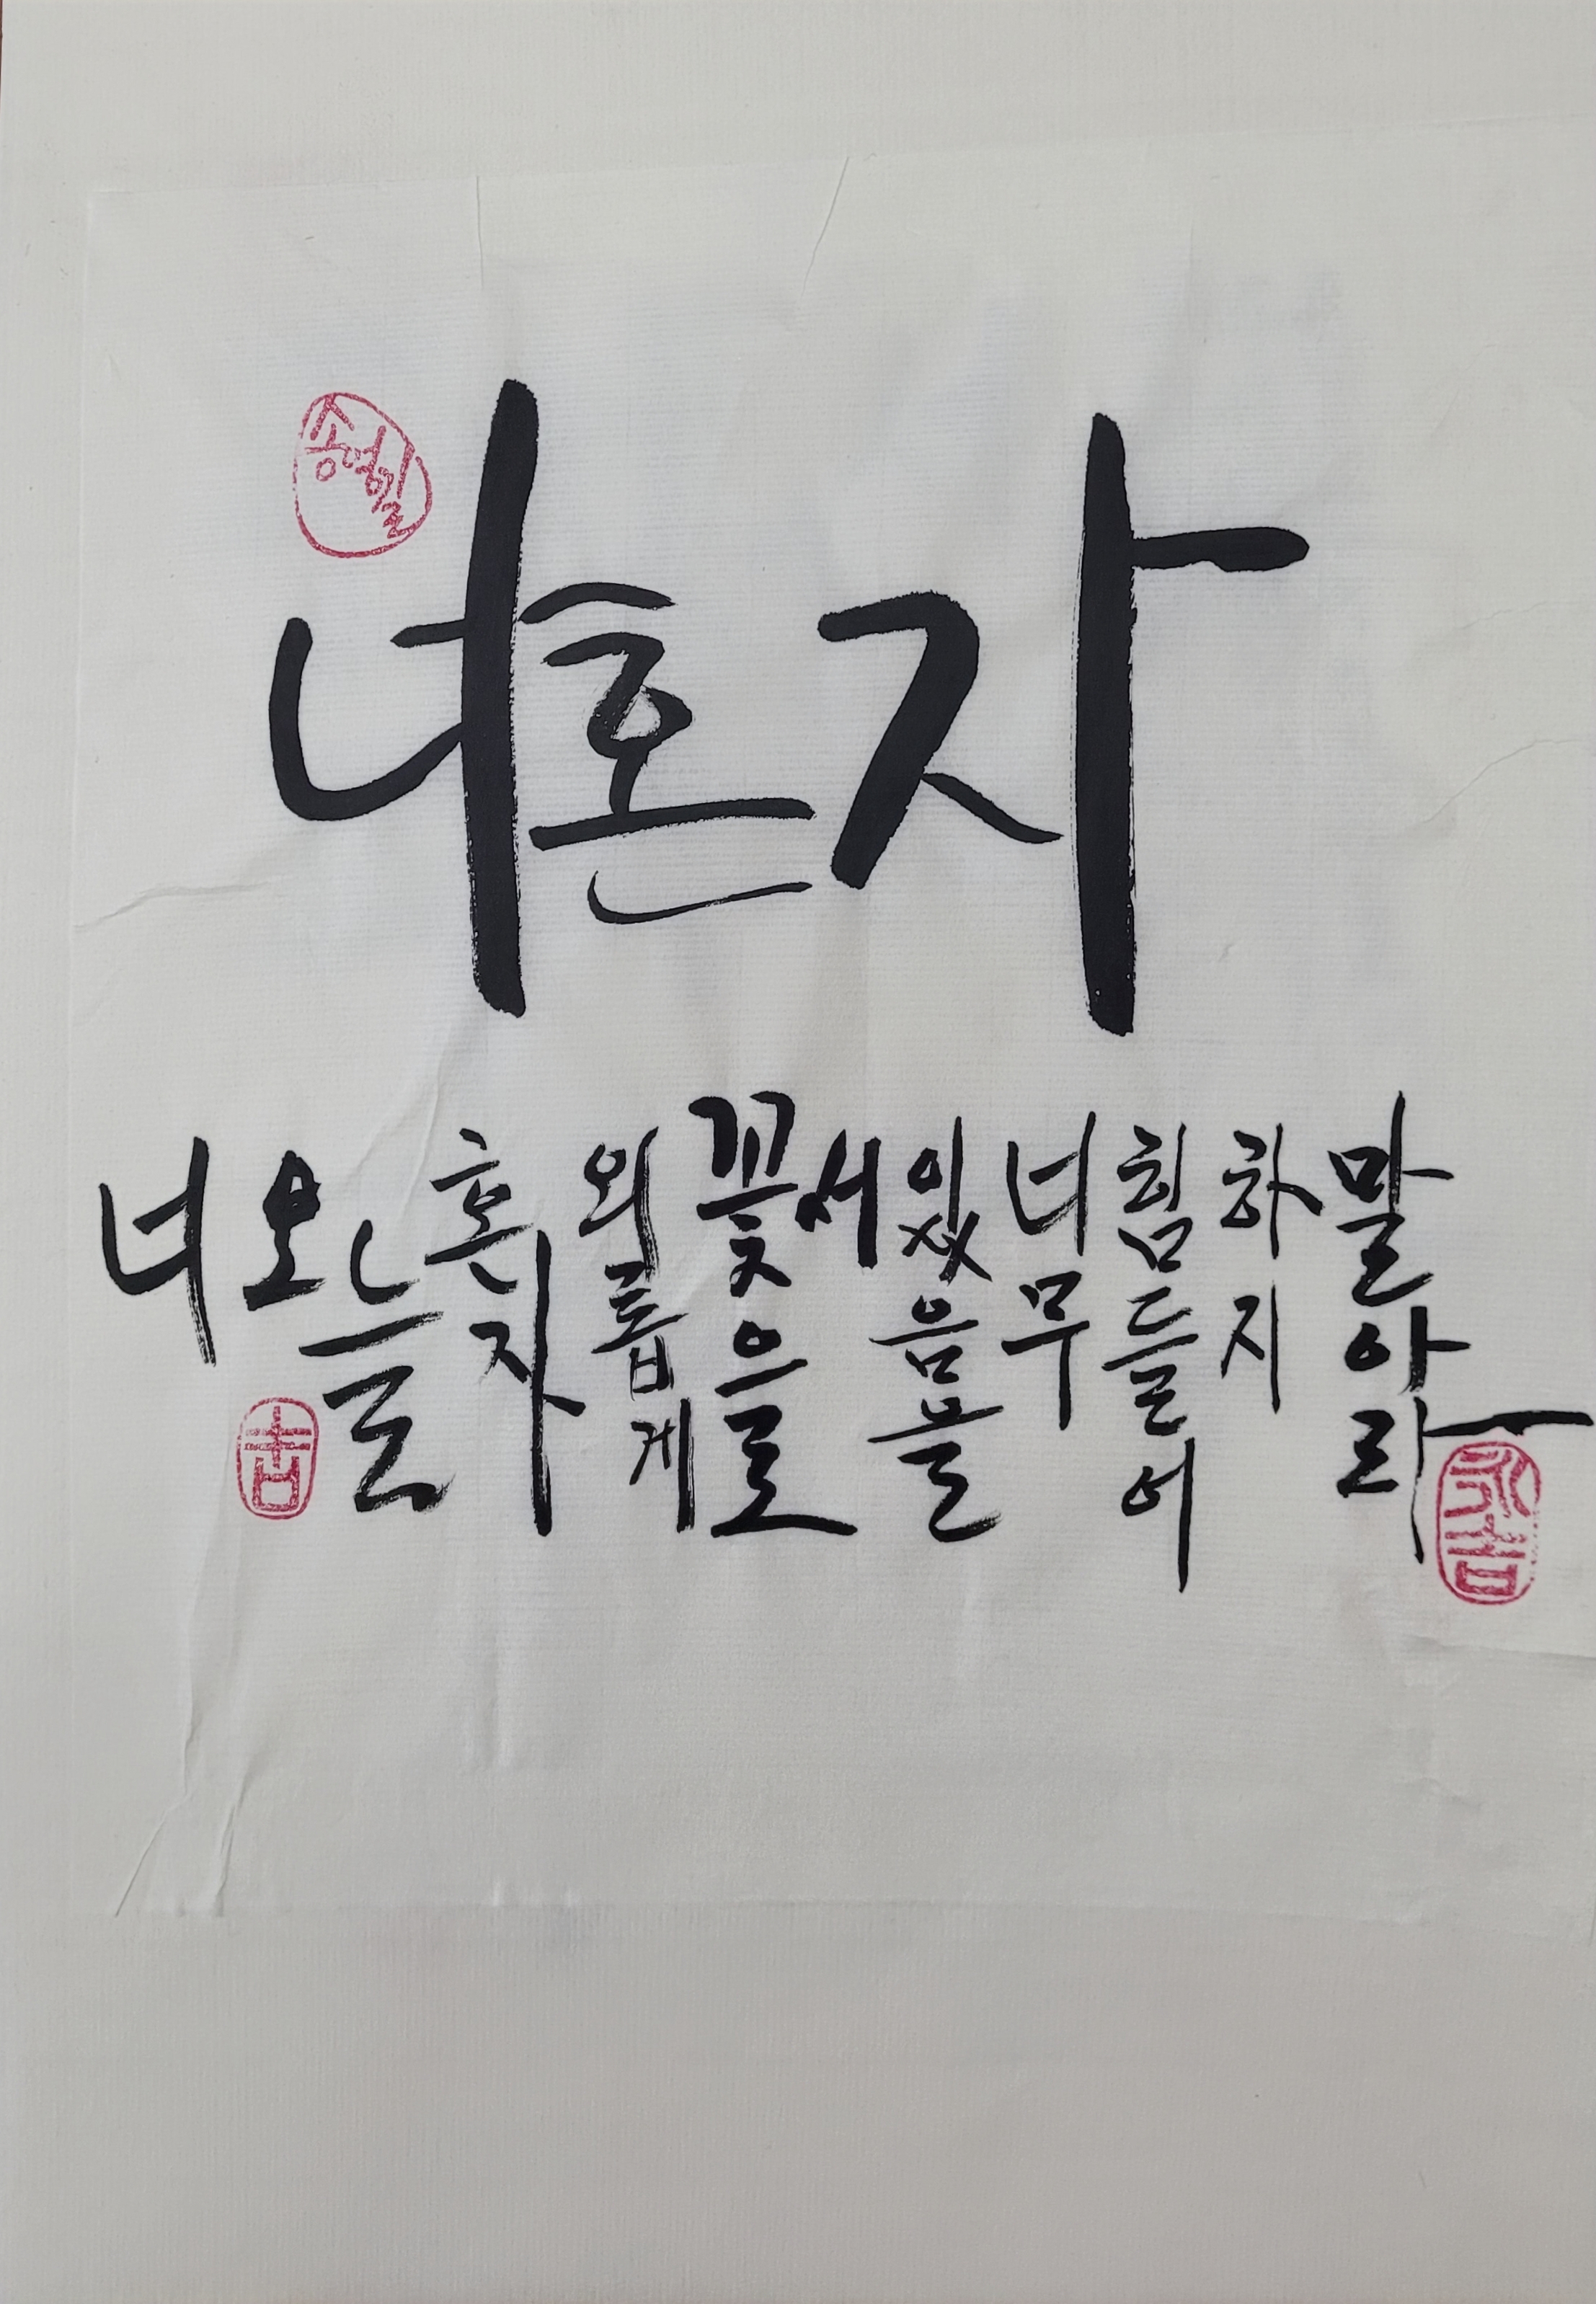 송영길
너 혼자
너 오늘 혼자 외롭게 꽃으로 서 있음을 너무 힘들어 하지 말아라
吉
永吉